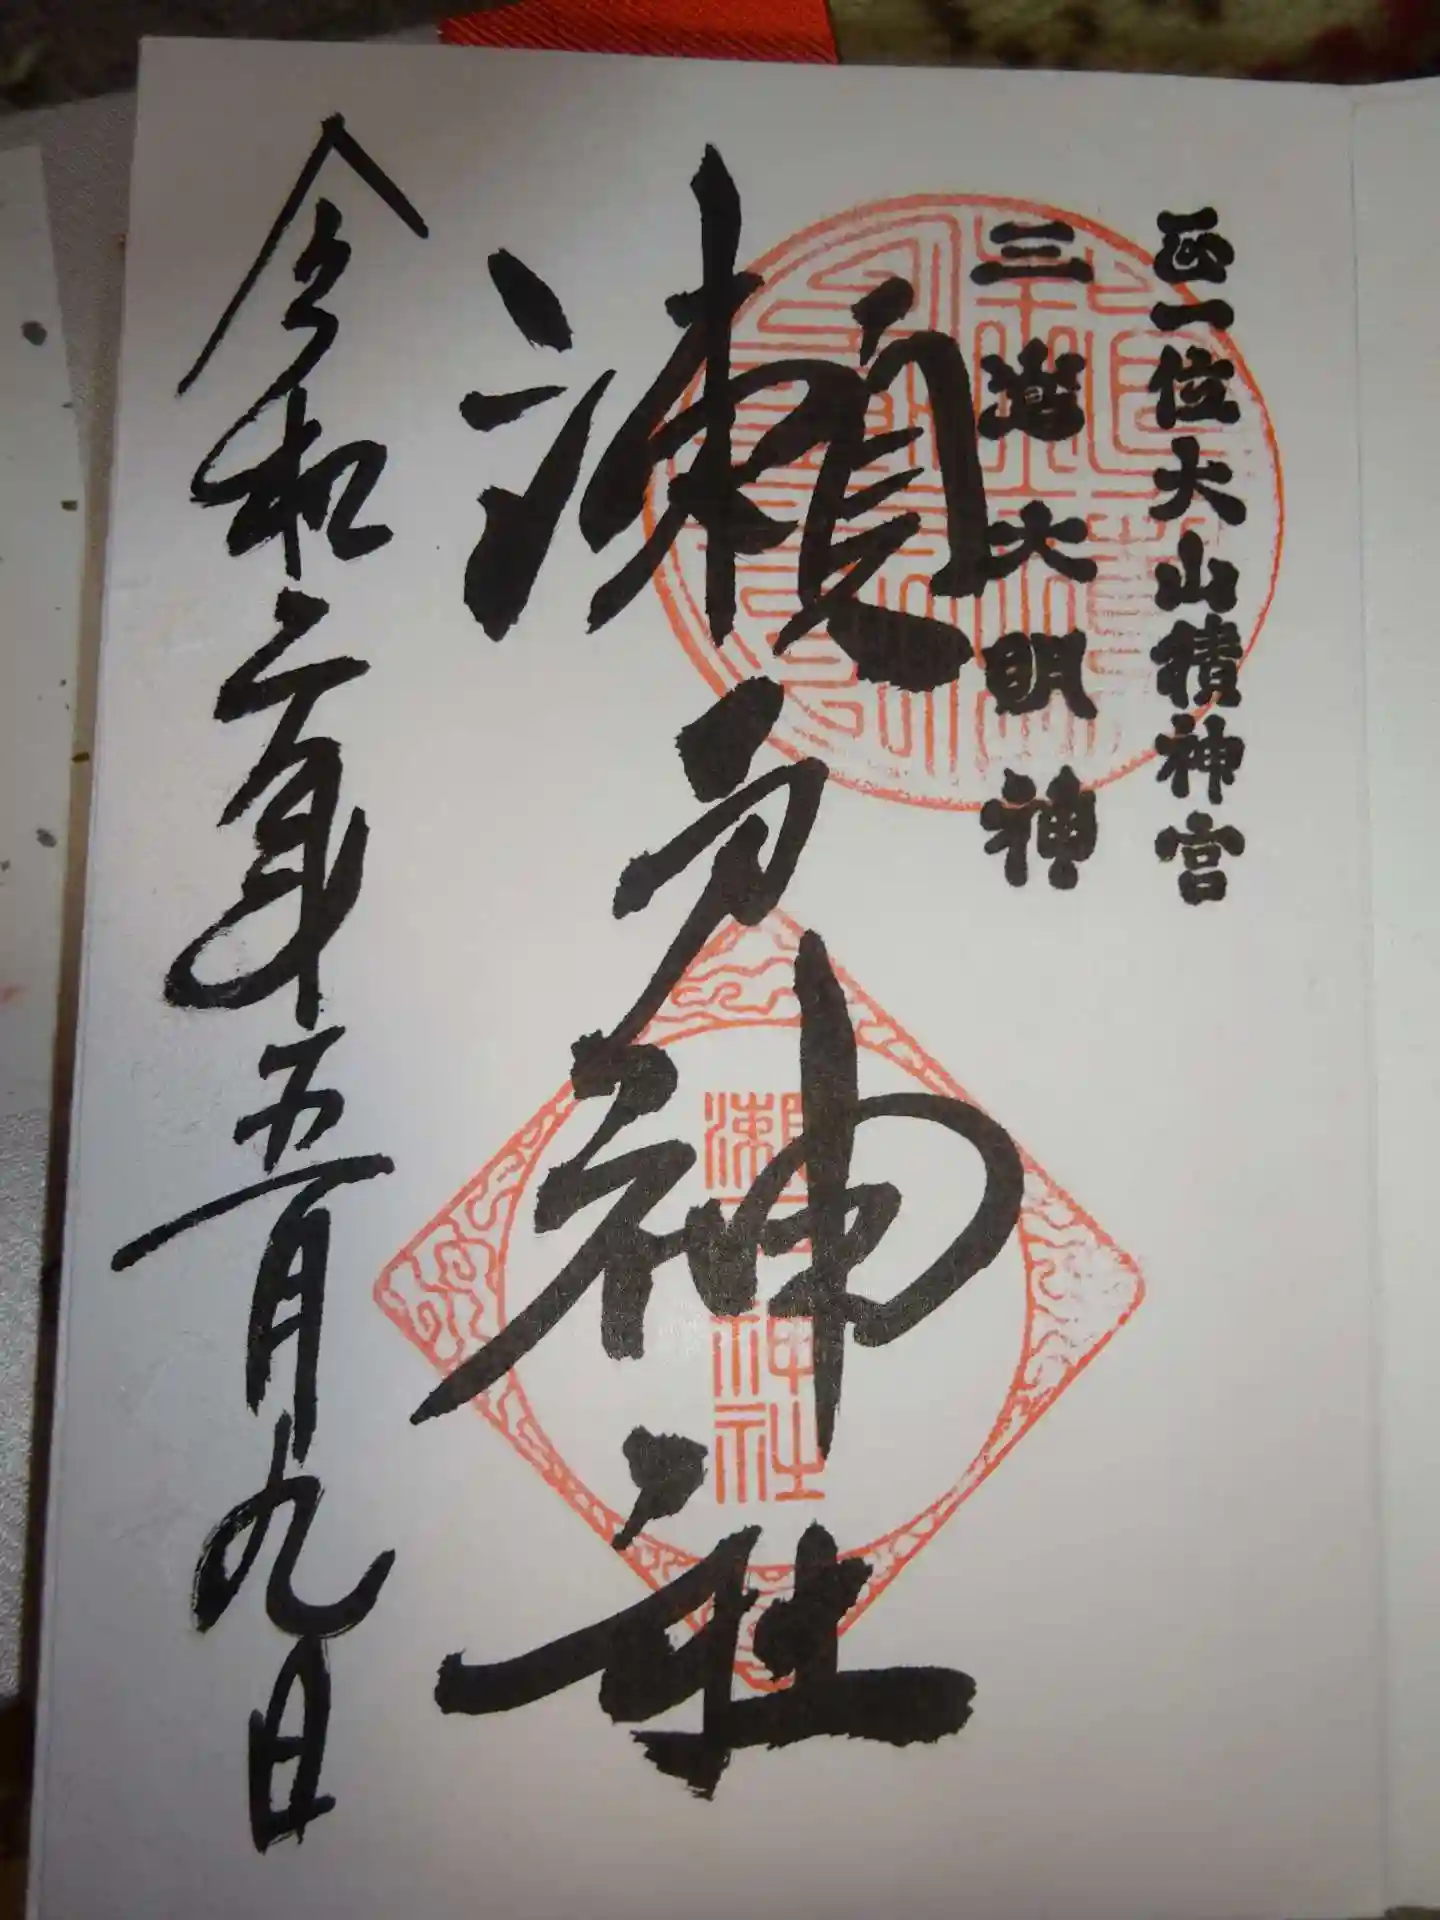 正一位大山積神宮
三島大明神
瀬戸神社
瀬戸神社
令和二年五月九日